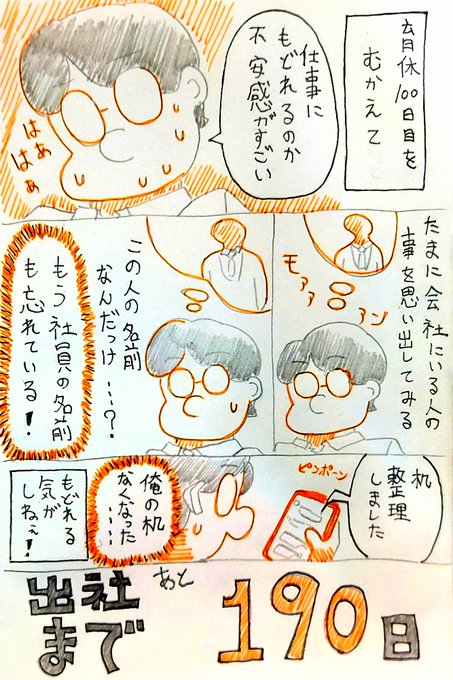 育休100日目を
むかえて
仕事に
もどれるのか
不安感がすごい
はぁ
はぁ
たまに会社にいる人の
事を思い出してみる
モァァ
アン
この人の名前
なんだっけ…?
もう社員の名前
も忘れている!
机
整理
しました
ピンポーン
俺の机
なくなった
……
もどれる
気が
しねぇ!
出社
まで
あと
190日